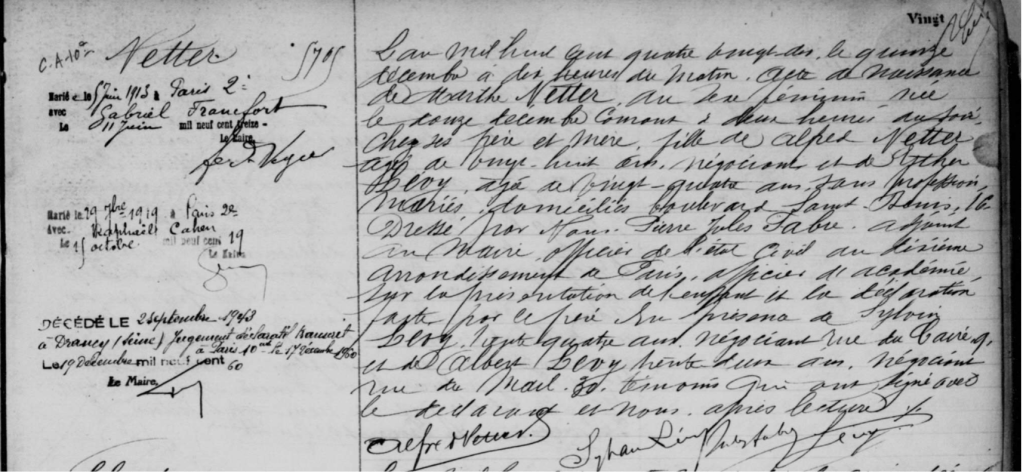 Vingt
C.A. 10e
Netter
5705
Marié e le 5 Juin 1913 à Paris 2e
avec Gabriel Francfort
Le 11 Juin mil neuf cent treize -
Le Maire,
Marié le 29 7bre 1919 à Paris 2e
avec Raphaël Cahen
Le 15 octobre mil neuf cent 19
Le Maire
DÉCÉDÉ LE 2 septembre 1943
à Drancy (Seine) Jugement déclaratif transcrit
à Paris 10me le 17 décembre 1960
Le 19 Décembre mil neuf cent 60
Le Maire,
L'an mil huit cent quatre vingt dix, le quinze
décembre à dix heures du matin. Acte de naissance
de Marthe Netter, du sexe féminin née
le douze décembre courant à deux heures du soir
chez ses père et mère, fille de Alfred Netter
agé de vingt-huit ans, négociant et de Esther
Lévy, agée de vingt-quatre ans, sans profession,
mariés, domiciliés boulevard Saint Denis, 16
Dressé par Nous, Pierre Jules Fabre, adjoint
au Maire, officier de l'état civil du dixième
arrondissement de Paris, officier d'académie,
sur la présentation de l'enfant et la déclaration
faite par le père En présence de Sylvain
Lévy, trente quatre ans, négociant rue du Caire, 9,
et de Albert Lévy trente deux ans, négociant
rue du Mail, 30, témoins qui ont signé avec
le déclarant et nous, après lecture
Alfred Netter
Sylvain Lévy